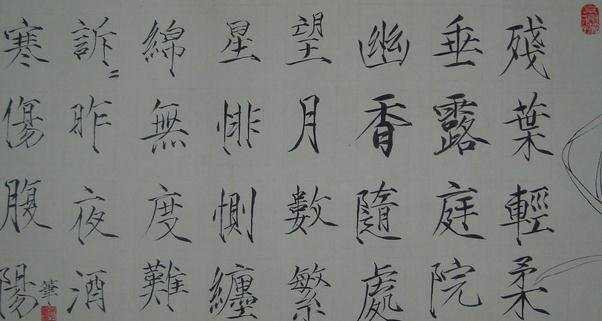 殘葉輕柔
垂露庭院
幽香隨處
望月數繁
星悱惻纏
綿無度難
訴〻昨夜酒
寒傷腹陽
華